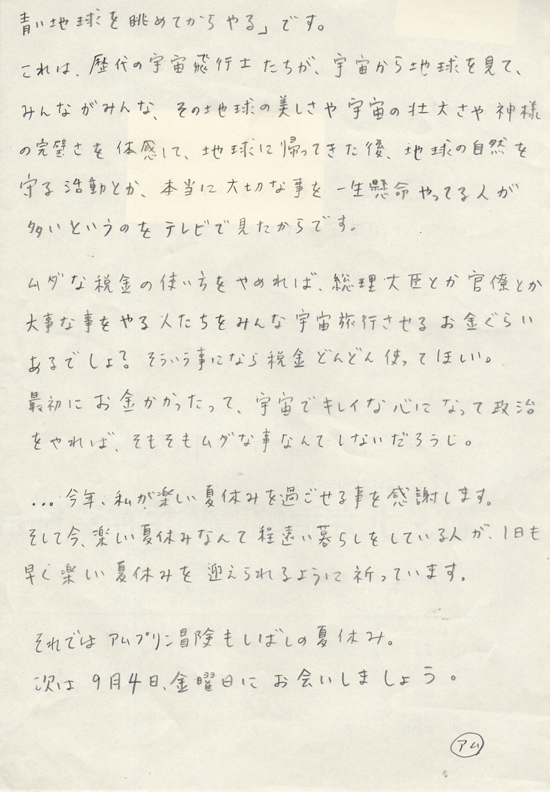 青い地球を眺めてからやる」です。
これは、歴代の宇宙飛行士たちが、宇宙から地球を見て、
みんながみんな、その地球の美しさや宇宙の壮大さや神様
の完璧さを体感して、地球に帰ってきた後、地球の自然を
守る活動とか、本当に大切な事を一生懸命やってる人が
多いというのをテレビで見たからです。
ムダな税金の使い方をやめれば、総理大臣とか官僚とか
大事な事をやる人たちをみんな宇宙旅行させるお金ぐらい
あるでしょ？そういう事になら税金どんどん使ってほしい。
最初にお金かかったって、宇宙でキレイな心になって政治
をやれば、そもそもムダな事なんてしないだろうし。
...今年、私が楽しい夏休みを過ごせる事を感謝します。
そして今、楽しい夏休みなんて程遠い暮らしをしている人が、1日も
早く楽しい夏休みを迎えられるように祈っています。
それではアムプリン冒険もしばしの夏休み。
次は9月4日、金曜日にお会いしましょう。
アム